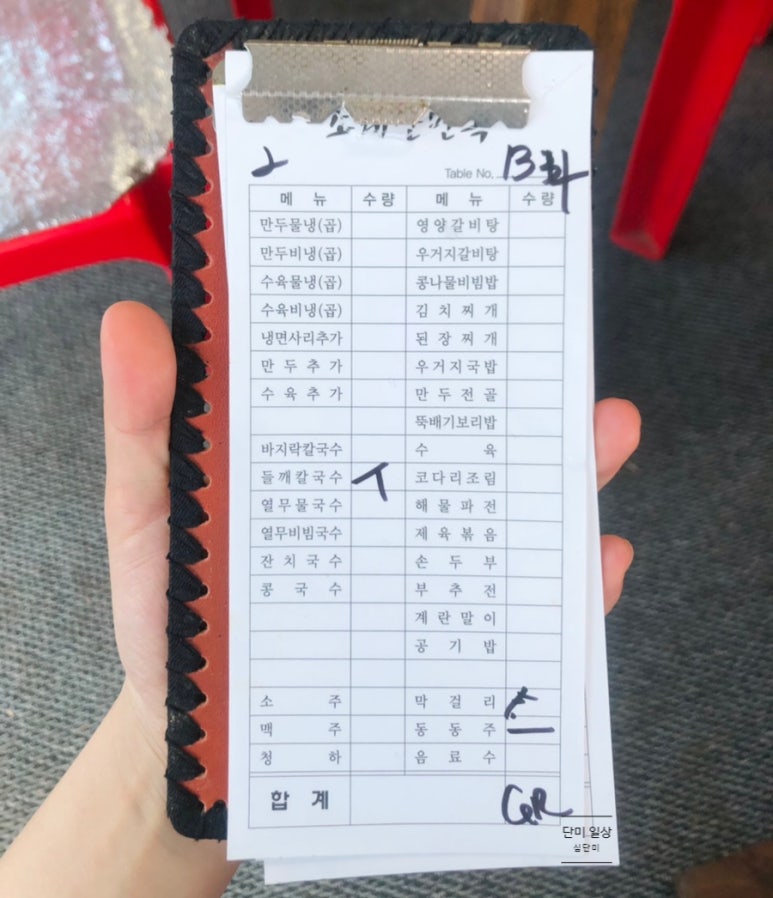 Table No. B
메뉴 수량 메뉴 수량
만두물냉(곱) 영양갈비탕
만두비냉(곱) 우거지갈비탕
수육물냉(곱) 콩나물비빔밥
수육비냉(곱) 김치찌개
냉면사리추가 된장찌개
만두추가 우거지국밥
수육추가 만두전골
뚝배기보리밥
바지락칼국수 수육
들깨칼국수 코다리조림
열무물국수 해물파전
열무비빔국수 제육볶음
잔치국수 손두부
콩국수 부추전
계란말이
공기밥
소주 막걸리
맥주 동동주
청하 음료수
합계
단미 일상
심단미